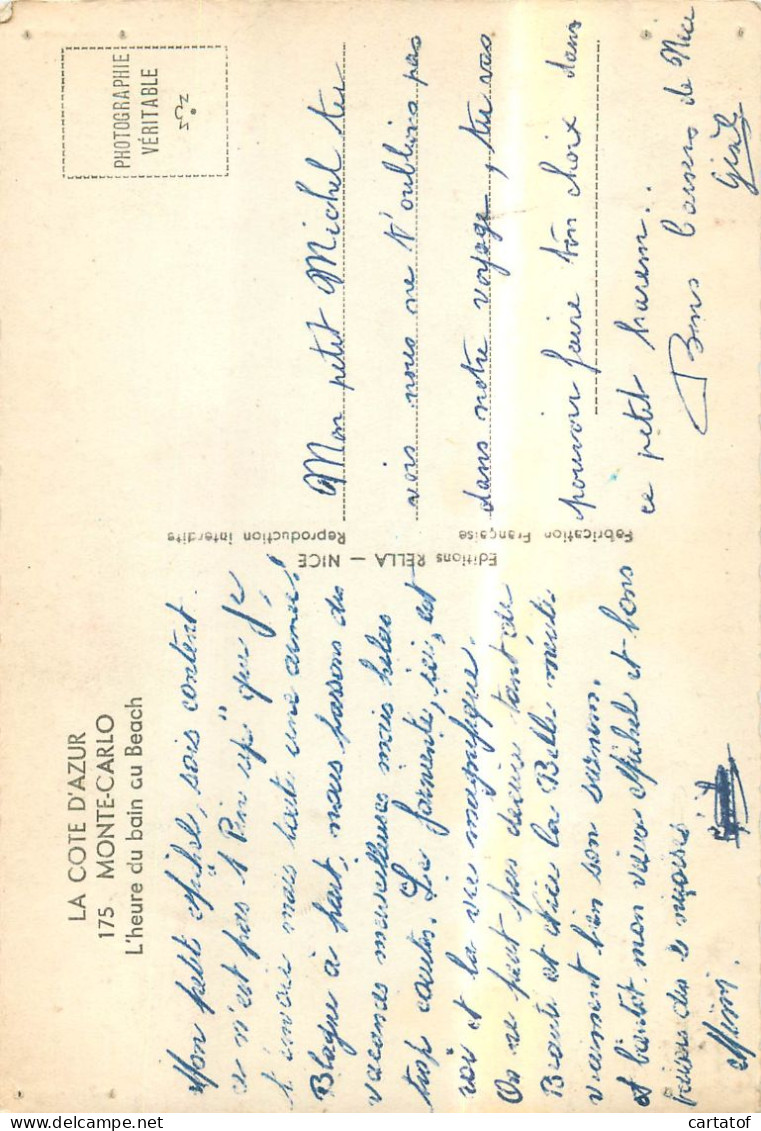 LA COTE D'AZUR
175 MONTE-CARLO
L'heure du bain au Beach
Mon petit Michel, sois content
ce n'est pas 1 Pin up" que je
t'envoie mais toute une armée!
Blague à part, nous passons des
vacances merveilleuses mais hélas
trop courtes. Le farniente, ici, est
roi et la vue magnifique.
On ne peut pas décrire tant de
Beauté et Nice la Belle mérite
vraiment bien son surnom.
A bientôt mon vieux Michel et bons
baisers des 2
Mimi.
Editions RELLA — NICE
Reproduction interdite
Fabrication Française
PHOTOGRAPHIE
VÉRITABLE
Mon petit Michel tu
vois nous ne t'oublions pas
dans notre voyage, tu vas
pouvoir faire ton choix dans
ce petit harem..
Bons baisers de Nice
cartatof